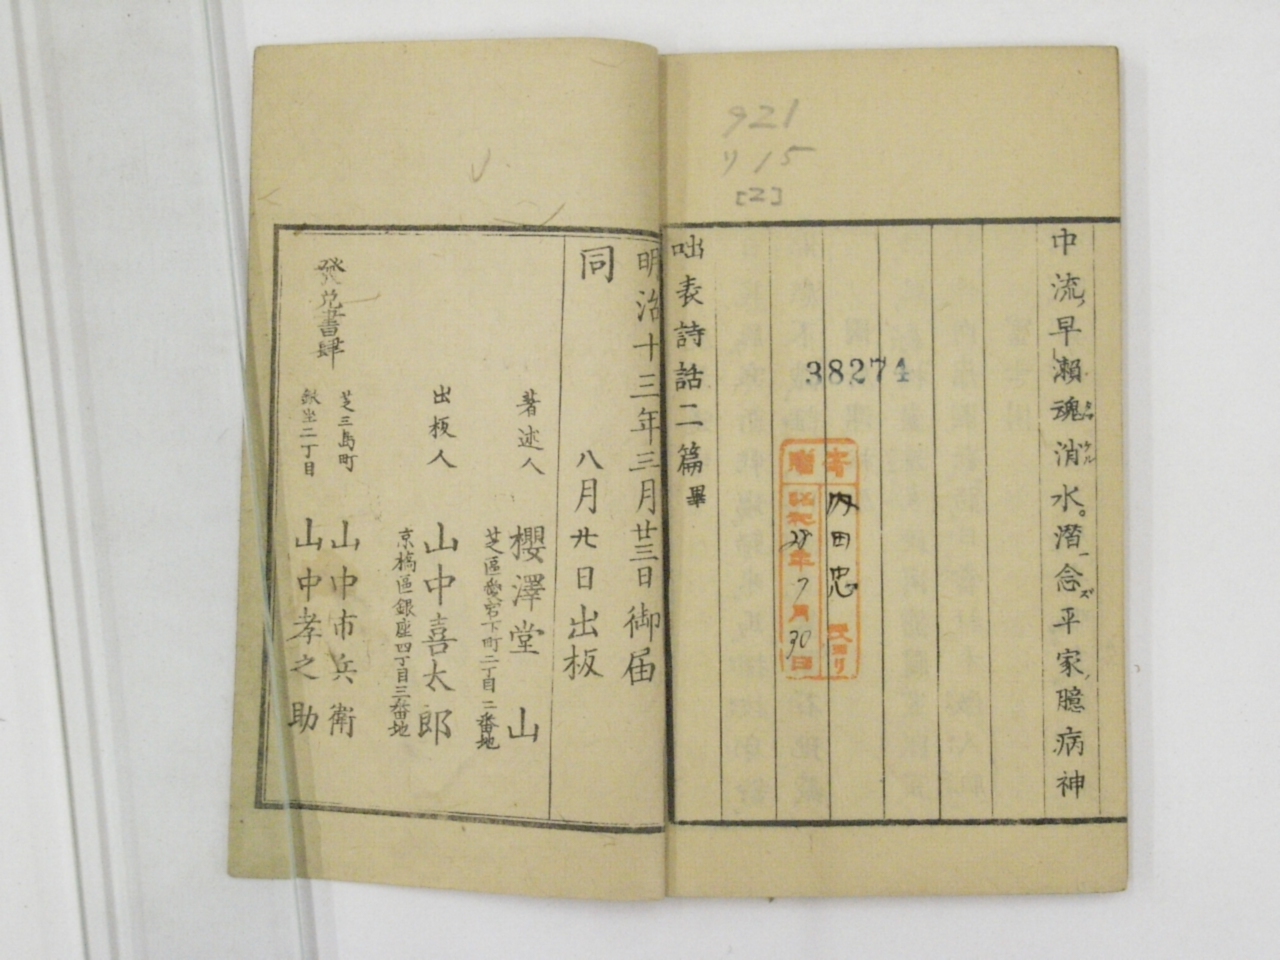 921
リ15
[2]
中流早瀬魂消水。潜念平家臆病神
38274
寄贈
内田忠
昭和28年7月30日
咄表詩話二篇 畢
明治十三年三月廿三日御届
同 八月廿日出板
著述人 櫻澤堂山
芝區愛宕下町二丁目二番地
出板人 山中喜太郎
京橋區銀座四丁目三番地
發兌書肆
芝三島町 山中市兵衛
銀坐二丁目 山中孝之助